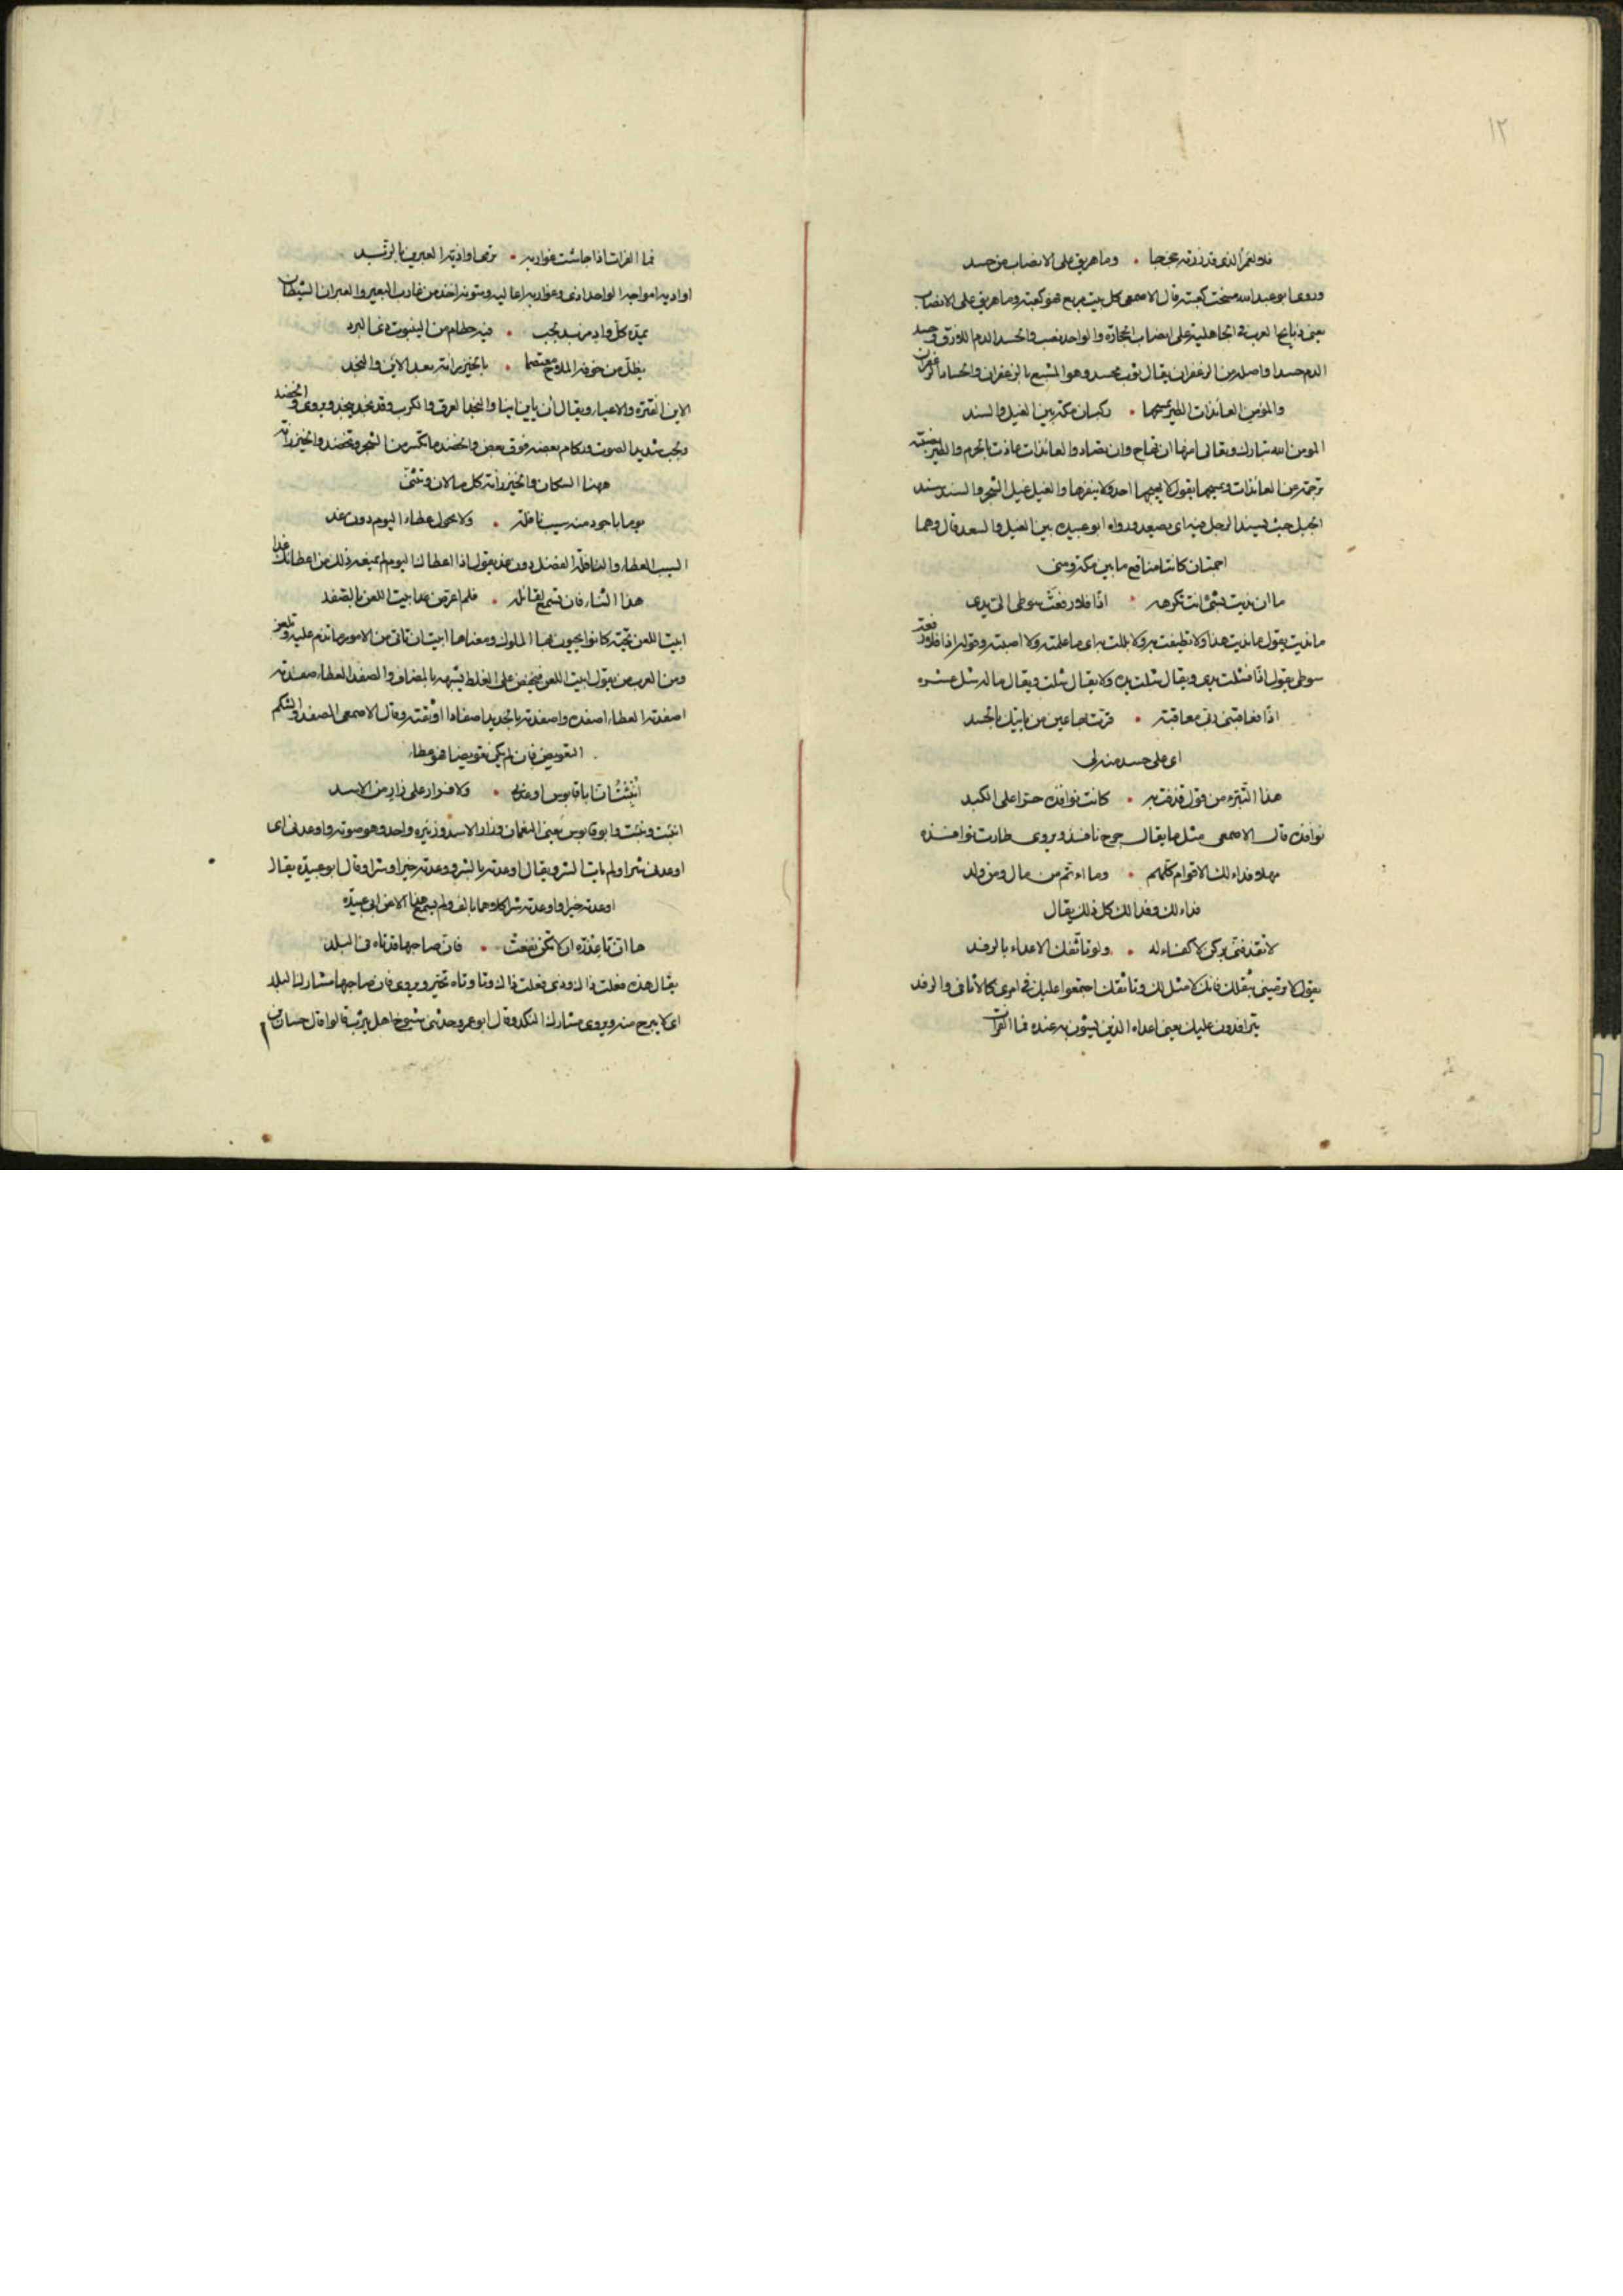 ١٢
فلا لعمر الذى قد زرته حججا • وما هريق على الانصاب من جسد
وروى ابو عبيد الله مسحت كعبته قال الاصمعى كل بيت مربع فهو كعبة وما هريق على الانصاب
يعنى ذبايح العرب فى الجاهلية على انصاب الحجارة والواحد نصب والجسد الدم اللازق وجسد
الدم جسدا واصله من الزعفران يقال ثوب مجسد وهو المشبع بالزعفران والجساد الزعفران
والمؤمن العائذات الطير يمسحها • ركبان مكة بين الغيل والسند
المومن الله تبارك وتعالى امنها ان تهاج وان تصاد والعائذات ما عاذت بالحرم والطير
ترجمة عن العائذات ويمسحها يقول لا يهيجها احد ولا ينفرها والغيل غيل الشجر والسند سند
الجبل حيث يسند الرجل فيه اى يصعد ورواه ابو عبيدة بين الغيل والسعد قال وهما
اجمتان كانتا مناقع ما بين مكة ومنى
ما ان نديت بشئ انت تكرهه • اذًا فلا رفعت سوطى الى يدى
ما نديت يقول ما نديت هذا ولا نطيفت به ولا بللت به اى ما علمته ولا اصبته وقوله اذا فلا رفعت
سوطى يقول اذًا فشلت يدى ويقال شلت يده ولا يقال شلت ويقال ما له شل عشره
اذًا فعاقبنى ربى معاقبة • قرت بها عين من ياتيك بالحسد
اى على حسد منه لى
هذا التبرّء من قول قذفت به • كانت نوافذه حرّا على الكبد
نوافذه قال الاصمعى مثل ما يقال جرح نافذ ويروى طارت نوافذه
مهلا فداء لك الاقوام كلهم • وما اثمّر من مال ومن ولد
فداء لك وفدا لك كل ذلك يقال
لا تقذفنى بركن لا كفاء له • ولو تاثّفك الاعداء بالرفد
يقول لا ترمينى بثقلك فانك لا مثل لك وتاثفك اجتمعوا عليك فى امرى كالاثافى والرفد
يترافدون عليك يعنى اعداءه الذين يسئون به عنده فما الفرات
فما الفرات اذا جاشت غواربه • ترمى اواذيّه العبرين بالزبد
اواذيه امواجه الواحد اذى وغواربه اعاليه ومتونه اخذ من غارب البعير والعبران الشطان
يمدّه كلّ واد مزبد لجب • فيه حطام من الينبوت والخضد
يظلّ من خوفه الملاح معتصما • بالخيزرانة بعد الاين والنجد
الاين الفترة والاعياء ويقال آن يأين اينا والنجد العرق والكرب وقد نجد ينجد ويروى والخضد
ولجب شديد الصوت وركام بعضه فوق بعض والخضد ما تكسر من الشجر وتخضد والخيزرانة
ههنا السكان والخيزرانة كل ما لان وتثنى
يوما باجود منه سيب نافلة • ولا يحول عطاء اليوم دون غد
السيب العطاء والنافلة الفضل دون غد يقول اذا اعطاك اليوم لم يمنعه ذلك من اعطائك غدا
هذا الثناء فان تسمع لقائله • فلم اعرض ابيت اللعن بالصفد
ابيت اللعن تحية كانوا يحيون بها الملوك ومعناها ابيت ان تاتى من الامور ما تذم عليه وتلعن
ومن العرب من يقول ابيت اللعن فيخفض على الغلط يشبهه بالمضاف والصفد العطاء صفدته
اصفدته العطاء اصفده واصفدته بالحديد اصفادا اوثقته وقال الاصمعى الصفد والشكم
التعويض فان لم يكن تعويضا فهو عطاء
انبئت ان ابا قابوس اوعدنى • ولا قرار على زأر من الاسد
انبئت ونبئت وابو قابوس يعنى النعمان وزار الاسد وزئيره واحد وهو صوته واوعدنى اى
اوعدنى شرا ولم يات الشر ويقال اوعدته بالشر ووعدته خيرا وشرا وقال ابو عبيدة يقال
اوعدته خيرا واوعدته شرا كلاهما بالف ولم يسمع هذا الا من ابى عبيدة
ها ان تا عذرة ان لا تكن نفعت • فان صاحبها قد تاه فى البلد
يقال هذه فعلت ذاك وذى فعلت ذاك وتا وتاه تحير ويروى فان صاحبها مشارك البلد
اى لا يبرح منه ويروى مشارك النكد وقال ابو عمرو حدثنى شيوخ اهل يثرب قالوا قال حسان بن